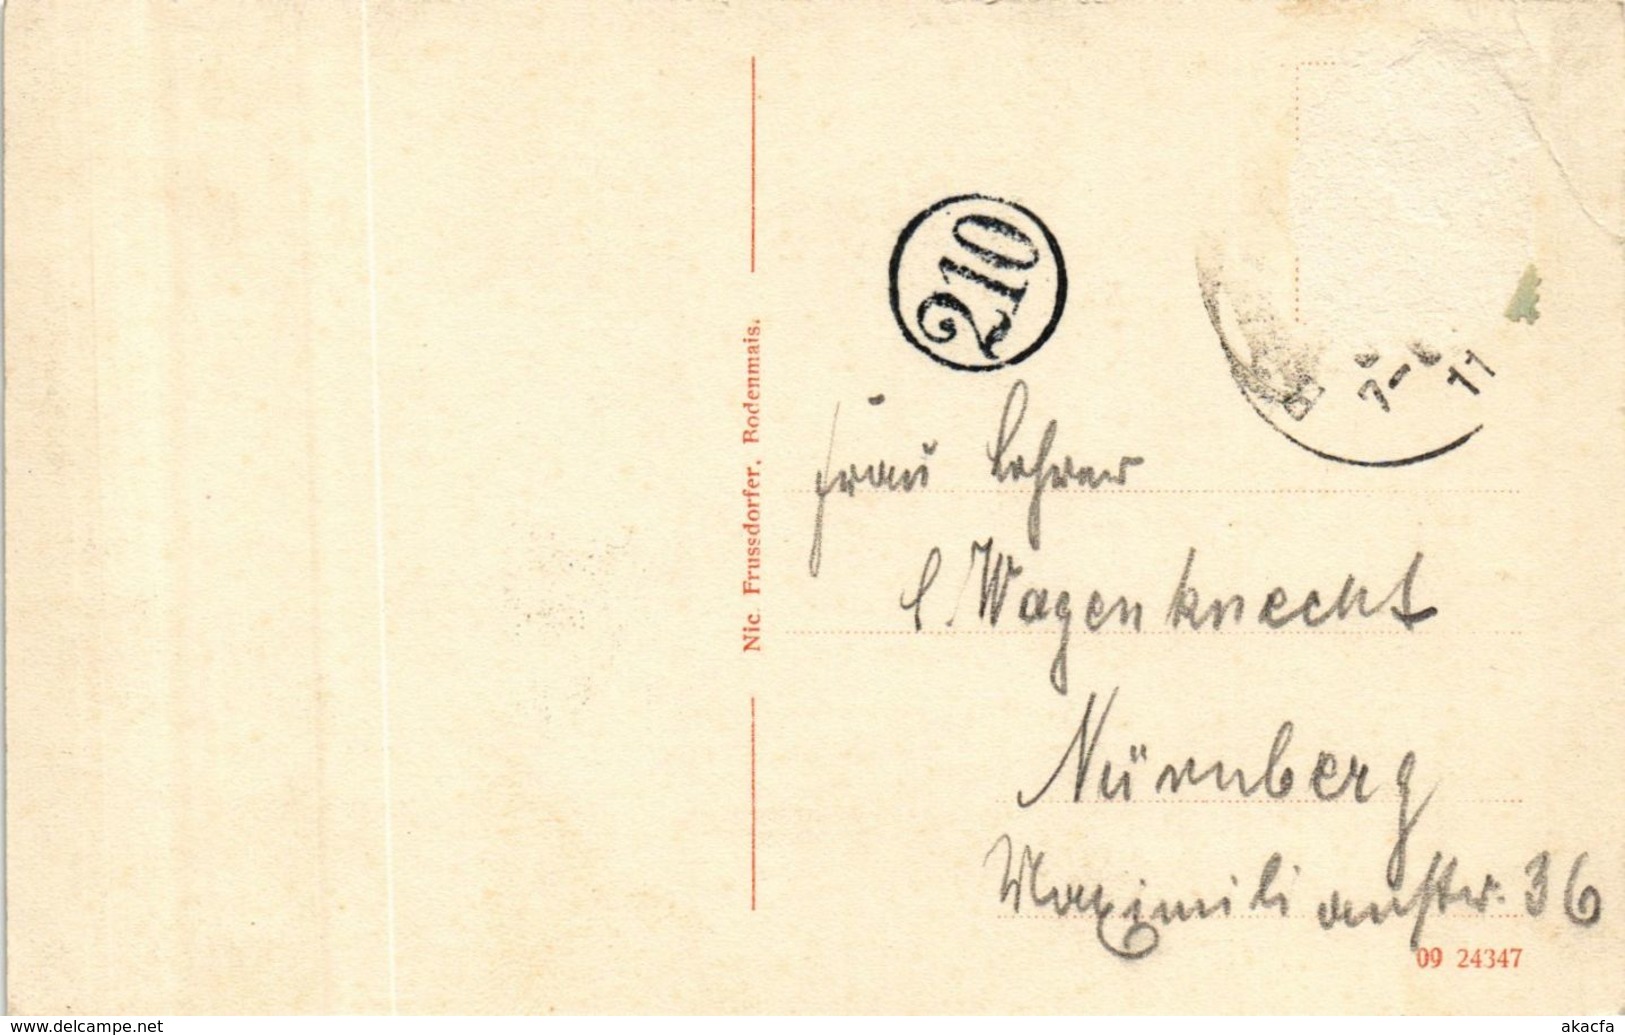 Nic. Frussdorfer, Rodenmais.
210
7-
11
Frau Lehrer
E. Wagenknecht
Nürnberg
Maximilianstr. 36
09 24347
www.delcampe.net
akacfa